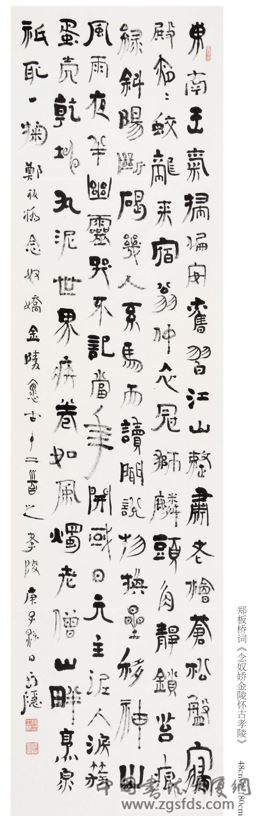 東南王氣掃偏安舊習江山整肅老檜蒼松盤寢
殿夜〻蛟龍來宿翁仲衣冠獅麟頭角靜鎖苔痕
綠斜陽斷碣幾人系馬而讀聞說物換星移神山
風雨夜半幽靈哭不記當年開國日元主泥人淚簇
蛋壳乾坤丸泥世界疾卷如風燭老僧山畔烹泉
祇取一掬 鄭板橋念奴嬌金陵懷古十二首之孝陵 庚子秋日
郑板桥词《念奴娇金陵怀古孝陵》 48cm×180cm
www.zgsfds.com